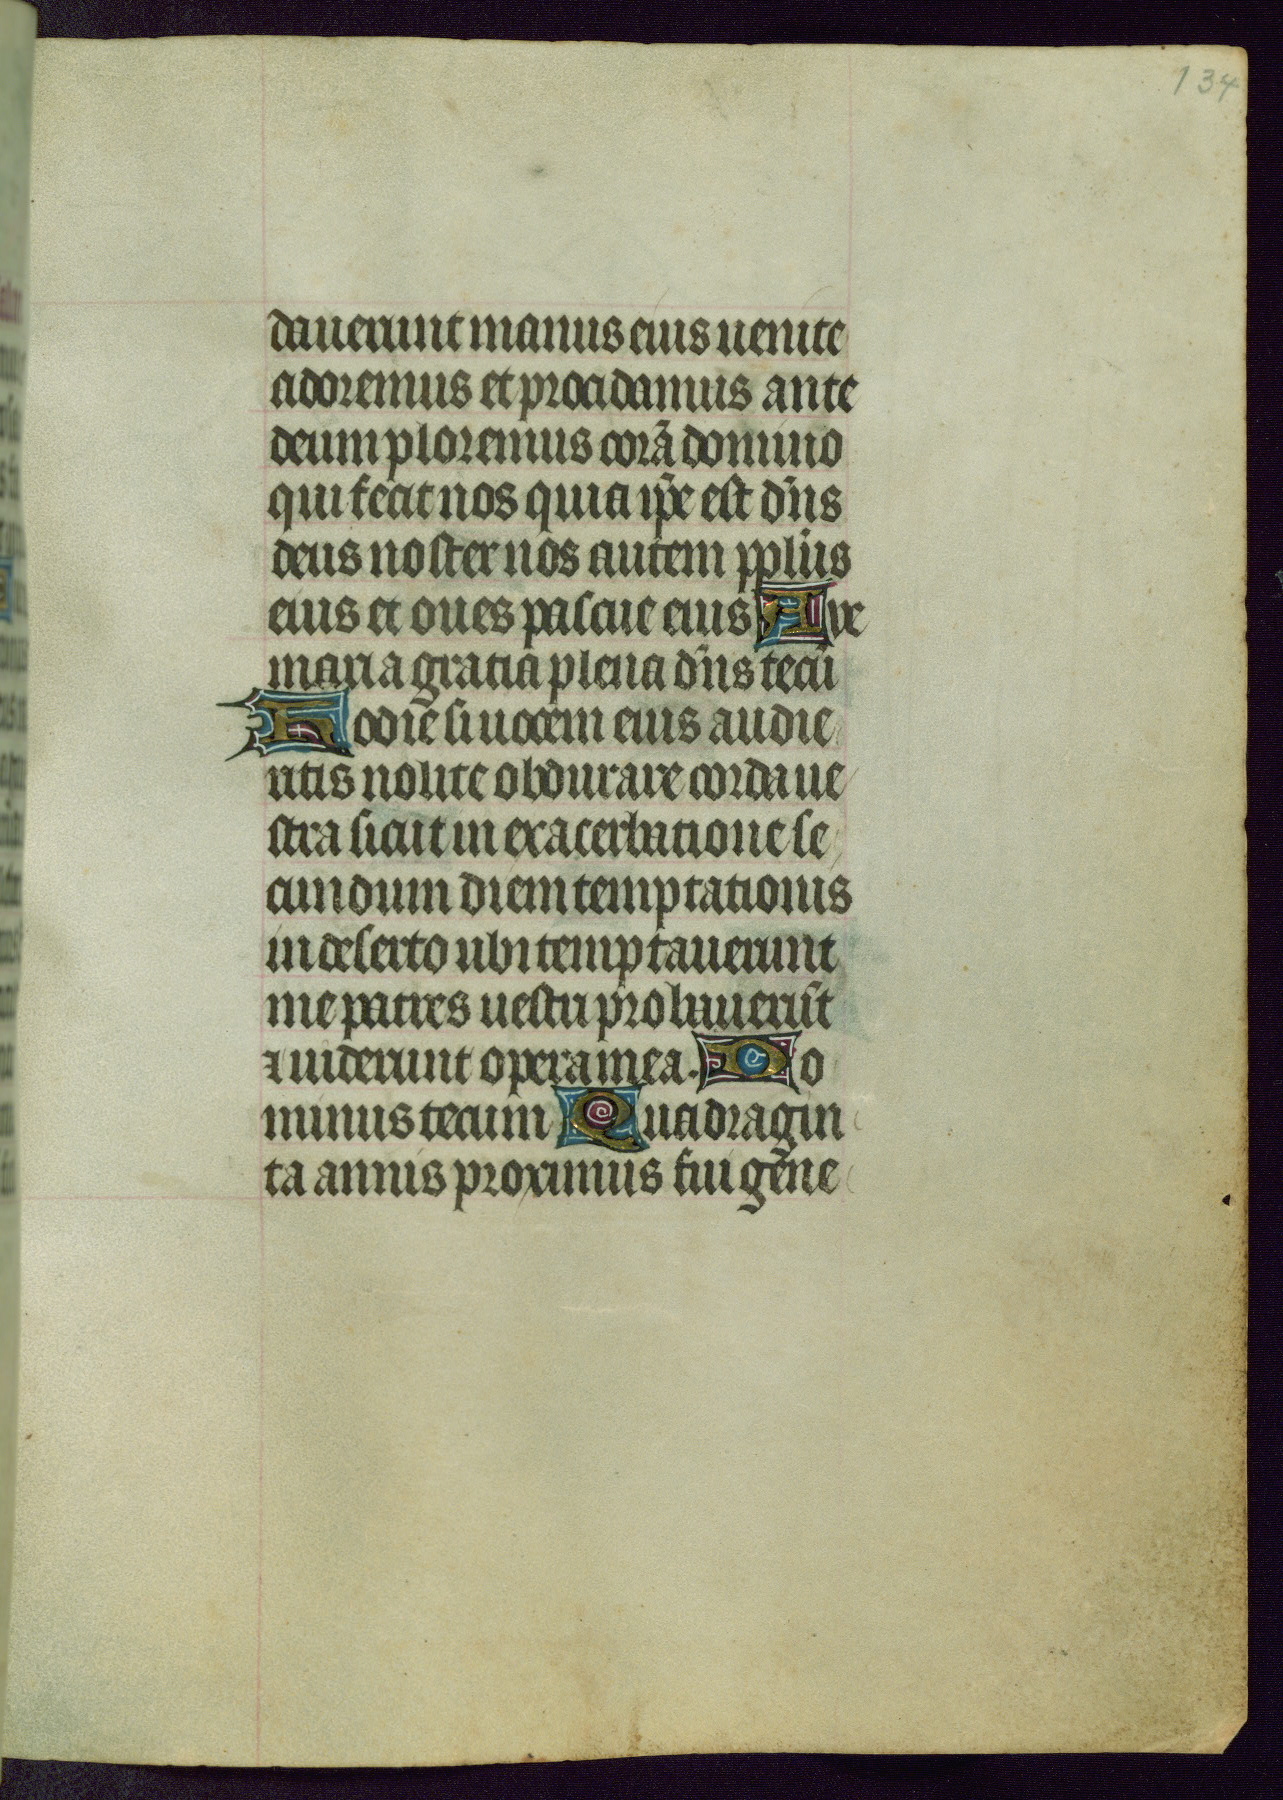 134
dauerunt manus eius uenite
adoremus et procidamus ante
deum ploremus corā domino
qui fecit nos quia ip̄e est dn̄s
deus noster nos autem pplūs
eius et oues pascue eius Aue
maria gratia plena dn̄s tecū
Hodie si uocem eius audie
ritis nolite obdurare corda ue
stra sicut in exacerbatione se
cundum diem temptationis
in deserto ubi temptauerunt
me patres uestri probauerūt
⁊ uiderunt opera mea. Do
minus tecum Quadragin
ta annis proximus fui gēne